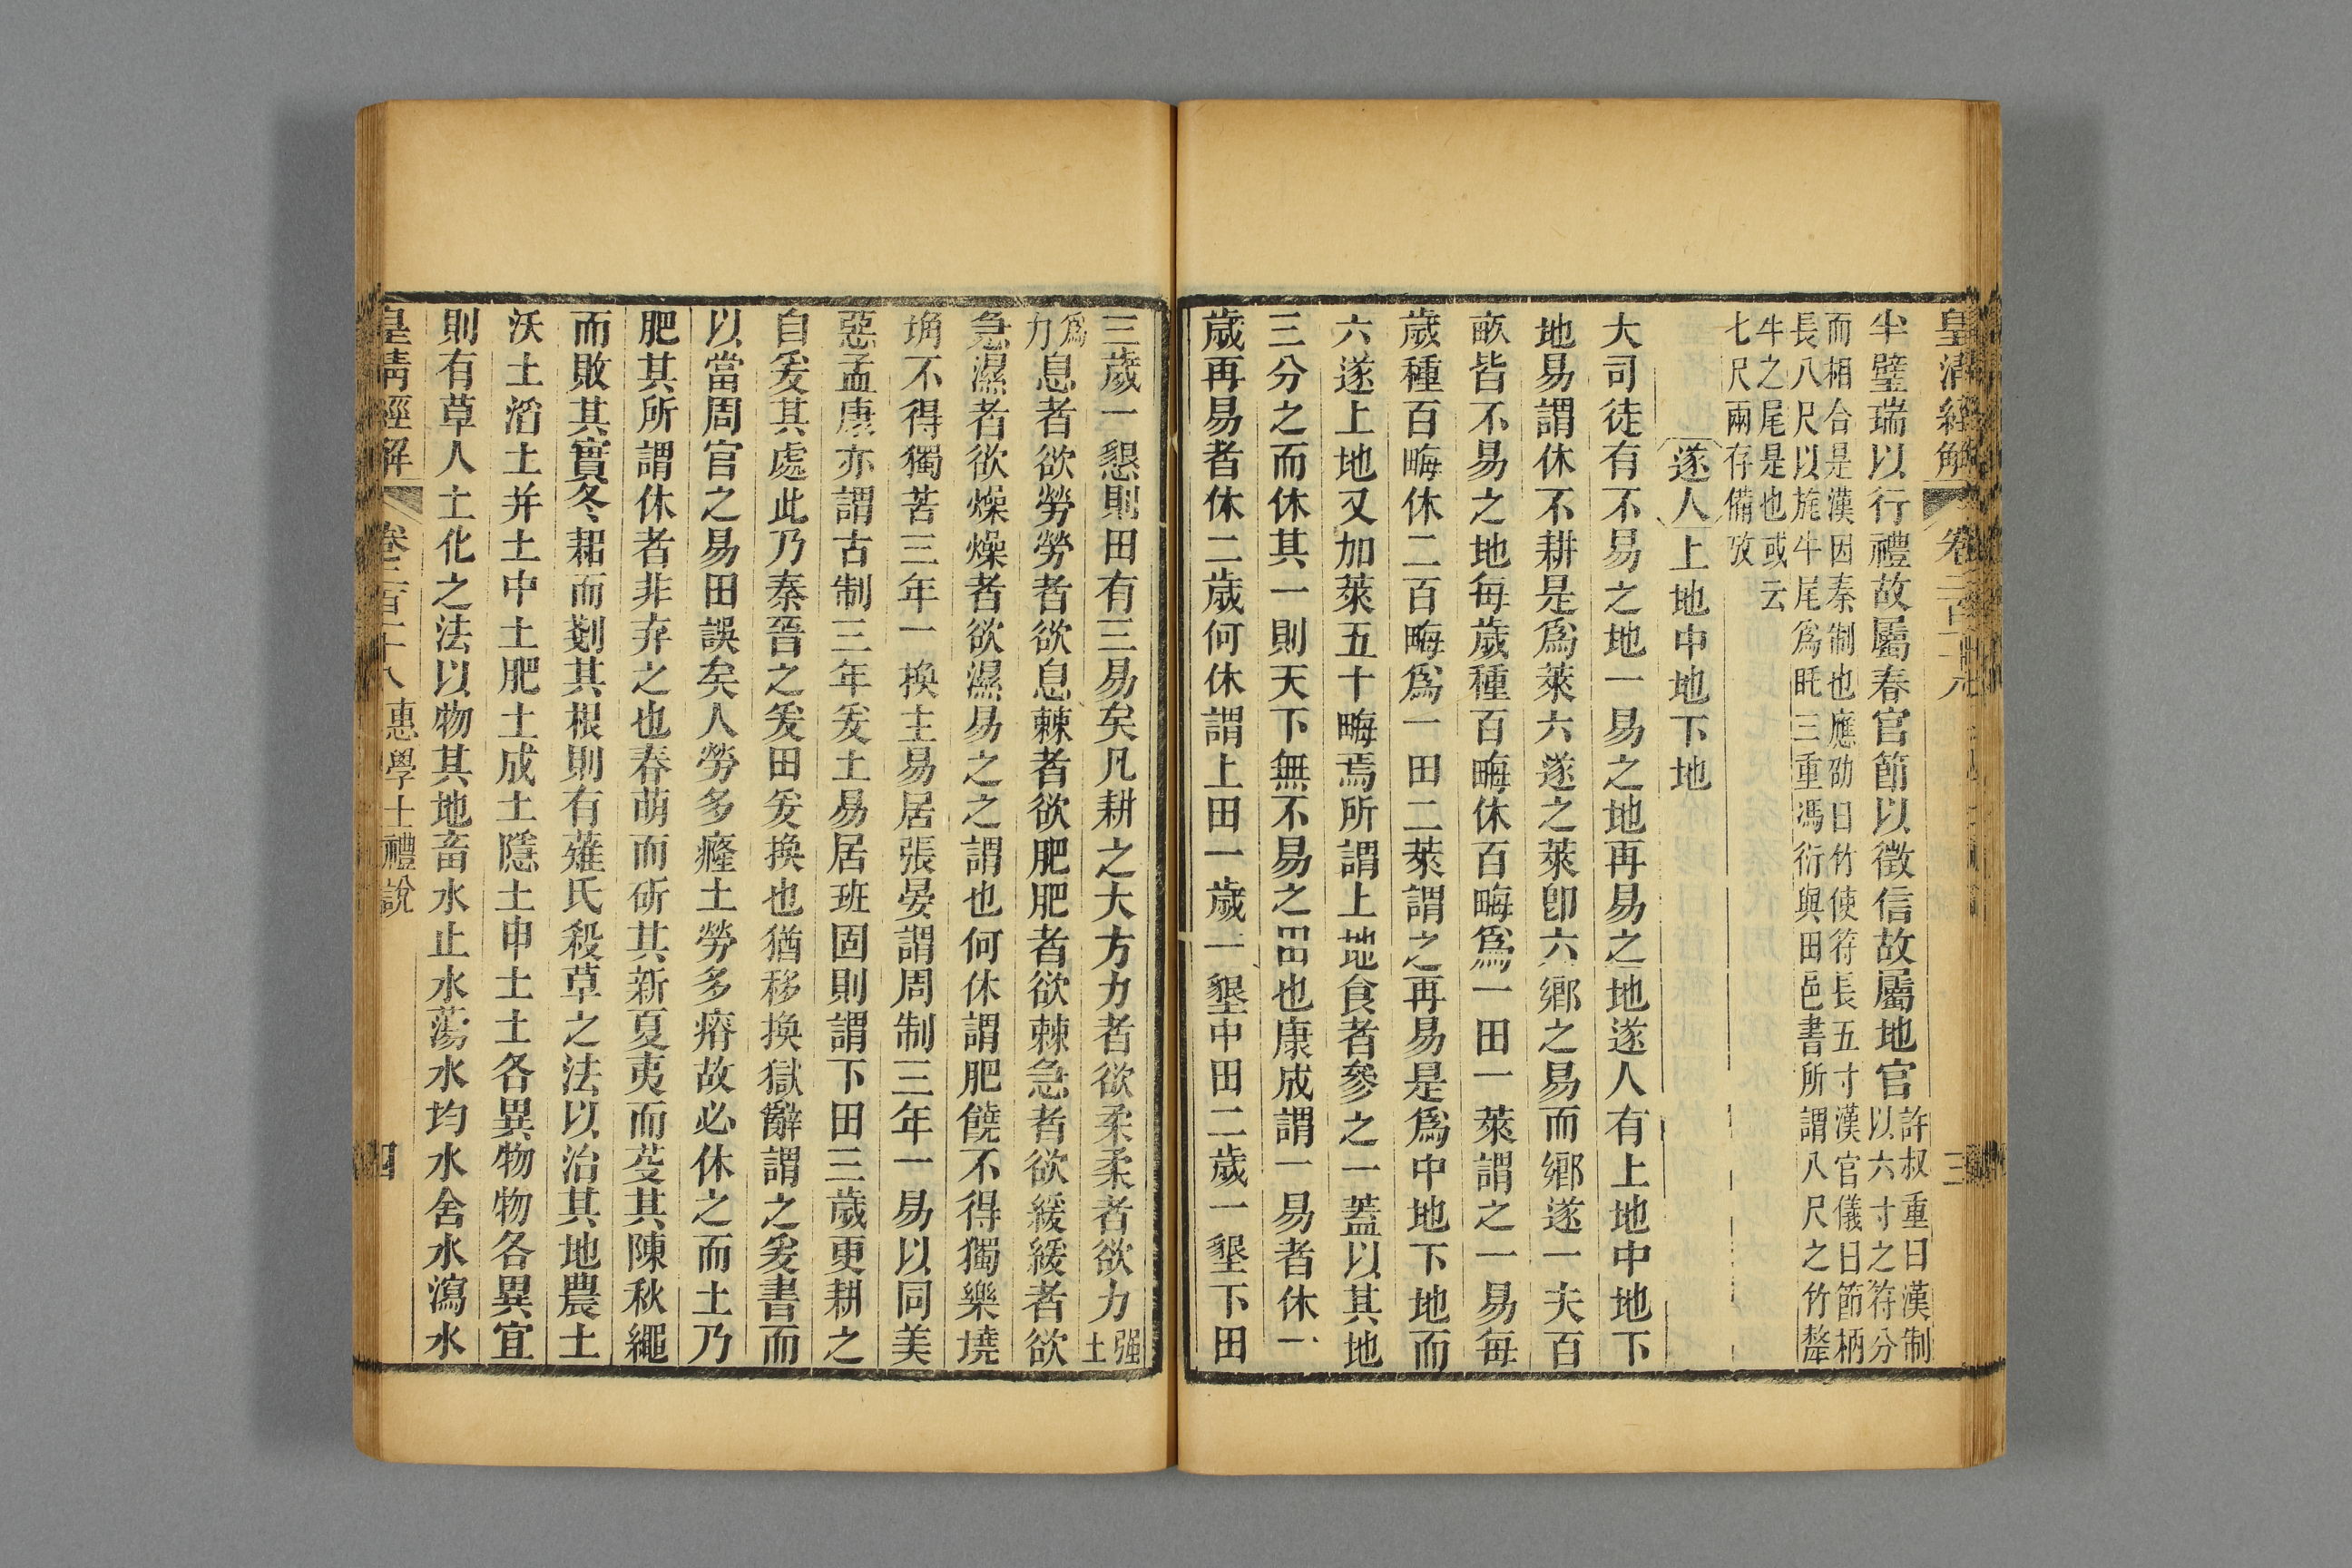 皇清經解 卷二百十八 三
半璧瑞以行禮故屬春官節以徵信故屬地官許叔重曰漢制以六寸之符分
而相合是漢因秦制也應劭曰竹使符長五寸漢官儀曰節柄
長八尺以旄牛尾爲眊三重馮衍與田邑書所謂八尺之竹犛
牛之尾是也或云
七尺兩存備攷
遂人上地中地下地
大司徒有不易之地一易之地再易之地遂人有上地中地下
地易謂休不耕是爲萊六遂之萊卽六鄉之易而鄉遂一夫百
畝皆不易之地每歲種百畮休百畮爲一田一萊謂之一易每
歲種百畮休二百畮爲一田二萊謂之再易是爲中地下地而
六遂上地又加萊五十畮焉所謂上地食者參之一蓋以其地
三分之而休其一則天下無不易之田也康成謂一易者休一
歲再易者休二歲何休謂上田一歲一墾中田二歲一墾下田
三歲一懇則田有三易矣凡耕之大方力者欲柔柔者欲力强土
爲力息者欲勞勞者欲息棘者欲肥肥者欲棘急者欲緩緩者欲
急濕者欲燥燥者欲濕易之之謂也何休謂肥饒不得獨樂墝
埆不得獨苦三年一換主易居張晏謂周制三年一易以同美
惡孟康亦謂古制三年爰土易居班固則謂下田三歲更耕之
自爰其處此乃秦晉之爰田爰換也猶移換獄辭謂之爰書而
以當周官之易田誤矣人勞多癃土勞多瘠故必休之而土乃
肥其所謂休者非弃之也春萌而斫其新夏夷而芟其陳秋繩
而敗其實冬耜而剗其根則有薙氏殺草之法以治其地農土
沃土滔土并土中土肥土成土隱土申土土各異物物各異宜
則有草人土化之法以物其地畜水止水蕩水均水舍水瀉水
皇清經解 卷二百十八 惠學士禮說 四